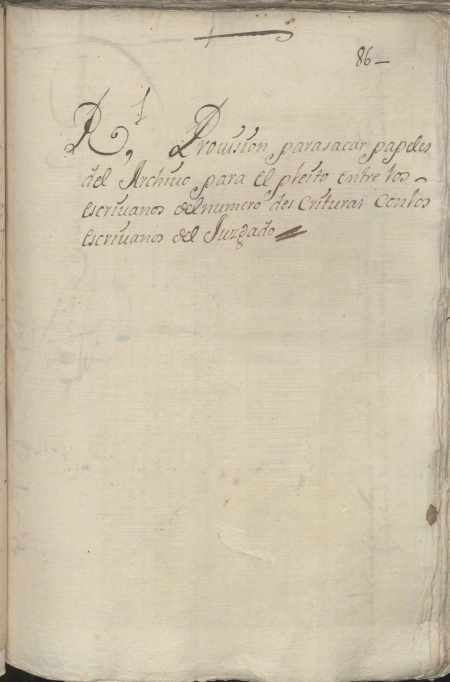 86
Rl, Provision parasacar papeles
del Archivo para El pleito entre los
escriuanos del numero descrituras Conlos
Escriuanos del Juzgado